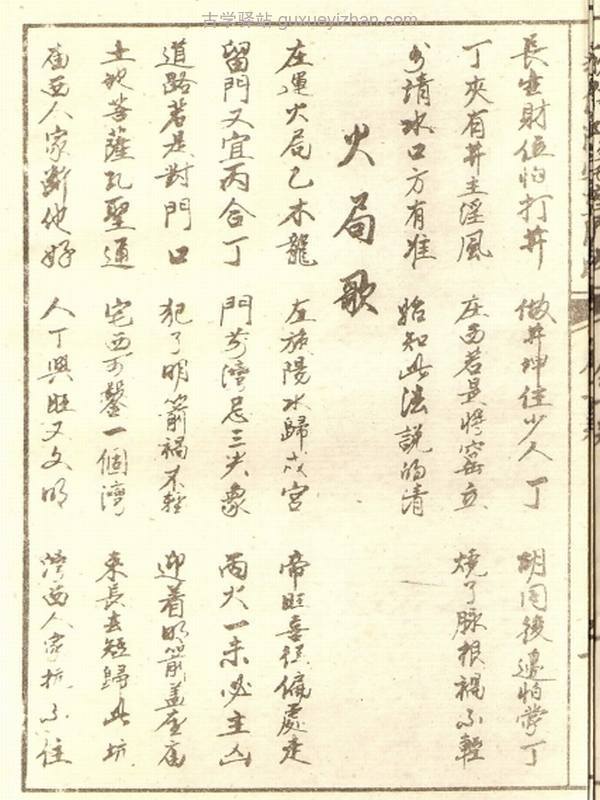 古学驿站 guxueyizhan.com
長生財位怕打井 做井押住少人丁 胡同後邊怕掌丁
丁夾有井主淫風 庄西若是將窑立 燒了脉根禍不輕
方有准 始知此法說的清
火局歌
左運火局乙木龍 左旋陽水歸戌宮 帝旺喜從偏處走
留門又宜丙合丁 門前湾忌三尖象 丙火一未必主凶
道路若是對門口 犯了明箭禍不輕 迎着明箭盖座庙
土地菩薩孔聖通 宅西可鑿一個湾 來長去短歸此坊
庙西人家斷他好 人丁興旺又文明 湾西人家抗不住